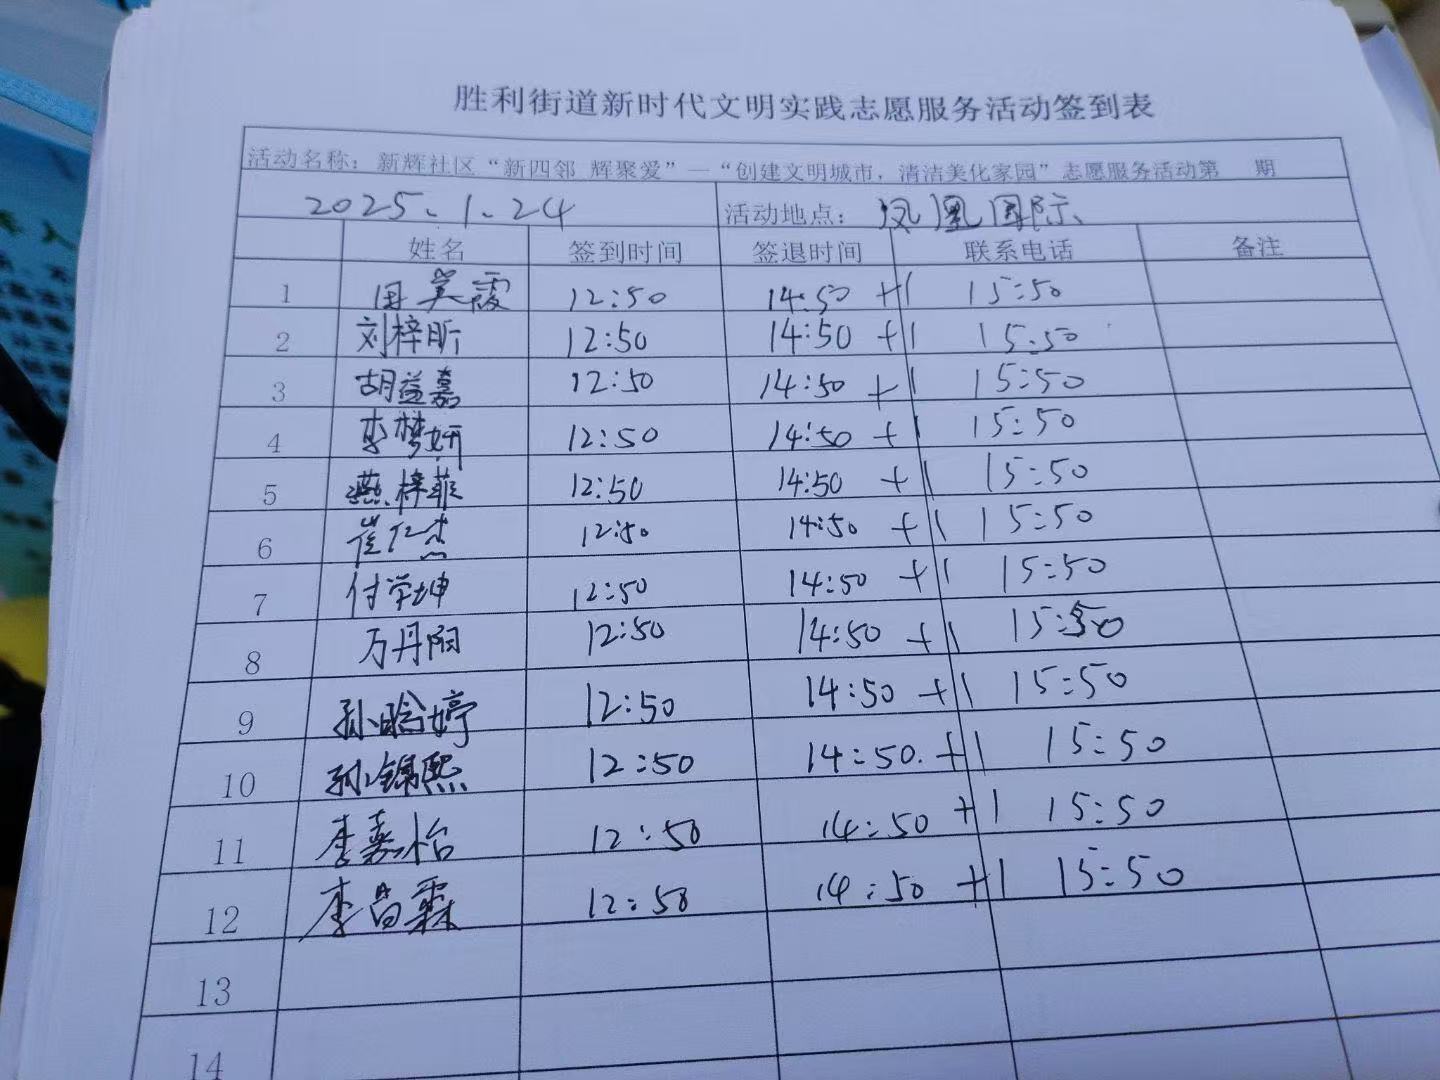 胜利街道新时代文明实践志愿服务活动签到表
活动名称：新辉社区“新四邻 辉聚爱”—“创建文明城市，清洁美化家园”志愿服务活动第 期
2025.1.24 活动地点：凤凰国际
姓名 签到时间 签退时间 联系电话 备注
1 田美霞 12:50 14:50 +1 15:50
2 刘梓昕 12:50 14:50 +1 15:50
3 胡益嘉 12:50 14:50 +1 15:50
4 李梦妍 12:50 14:50 +1 15:50
5 燕梓菲 12:50 14:50 +1 15:50
6 崔仁杰 12:50 14:50 +1 15:50
7 付学坤 12:50 14:50 +1 15:50
8 万丹阳 12:50 14:50 +1 15:50
9 孙晗婷 12:50 14:50 +1 15:50
10 孙锦熙 12:50 14:50. +1 15:50
11 李嘉怡 12:50 14:50 +1 15:50
12 李昌霖 12:50 14:50 +1 15:50
13
14